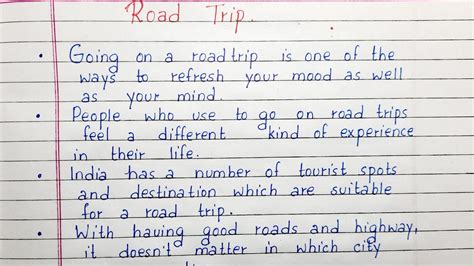 Road Trip.
• Going on a roadtrip is one of the
ways to refresh your mood as well
as your mind.
• People who use to go on road trips
feel a different kind of experience
in their life.
• India has a number of tourist spots
and destination which are suitable
for a road trip.
• With having good roads and highway,
it doesn't matter in which city